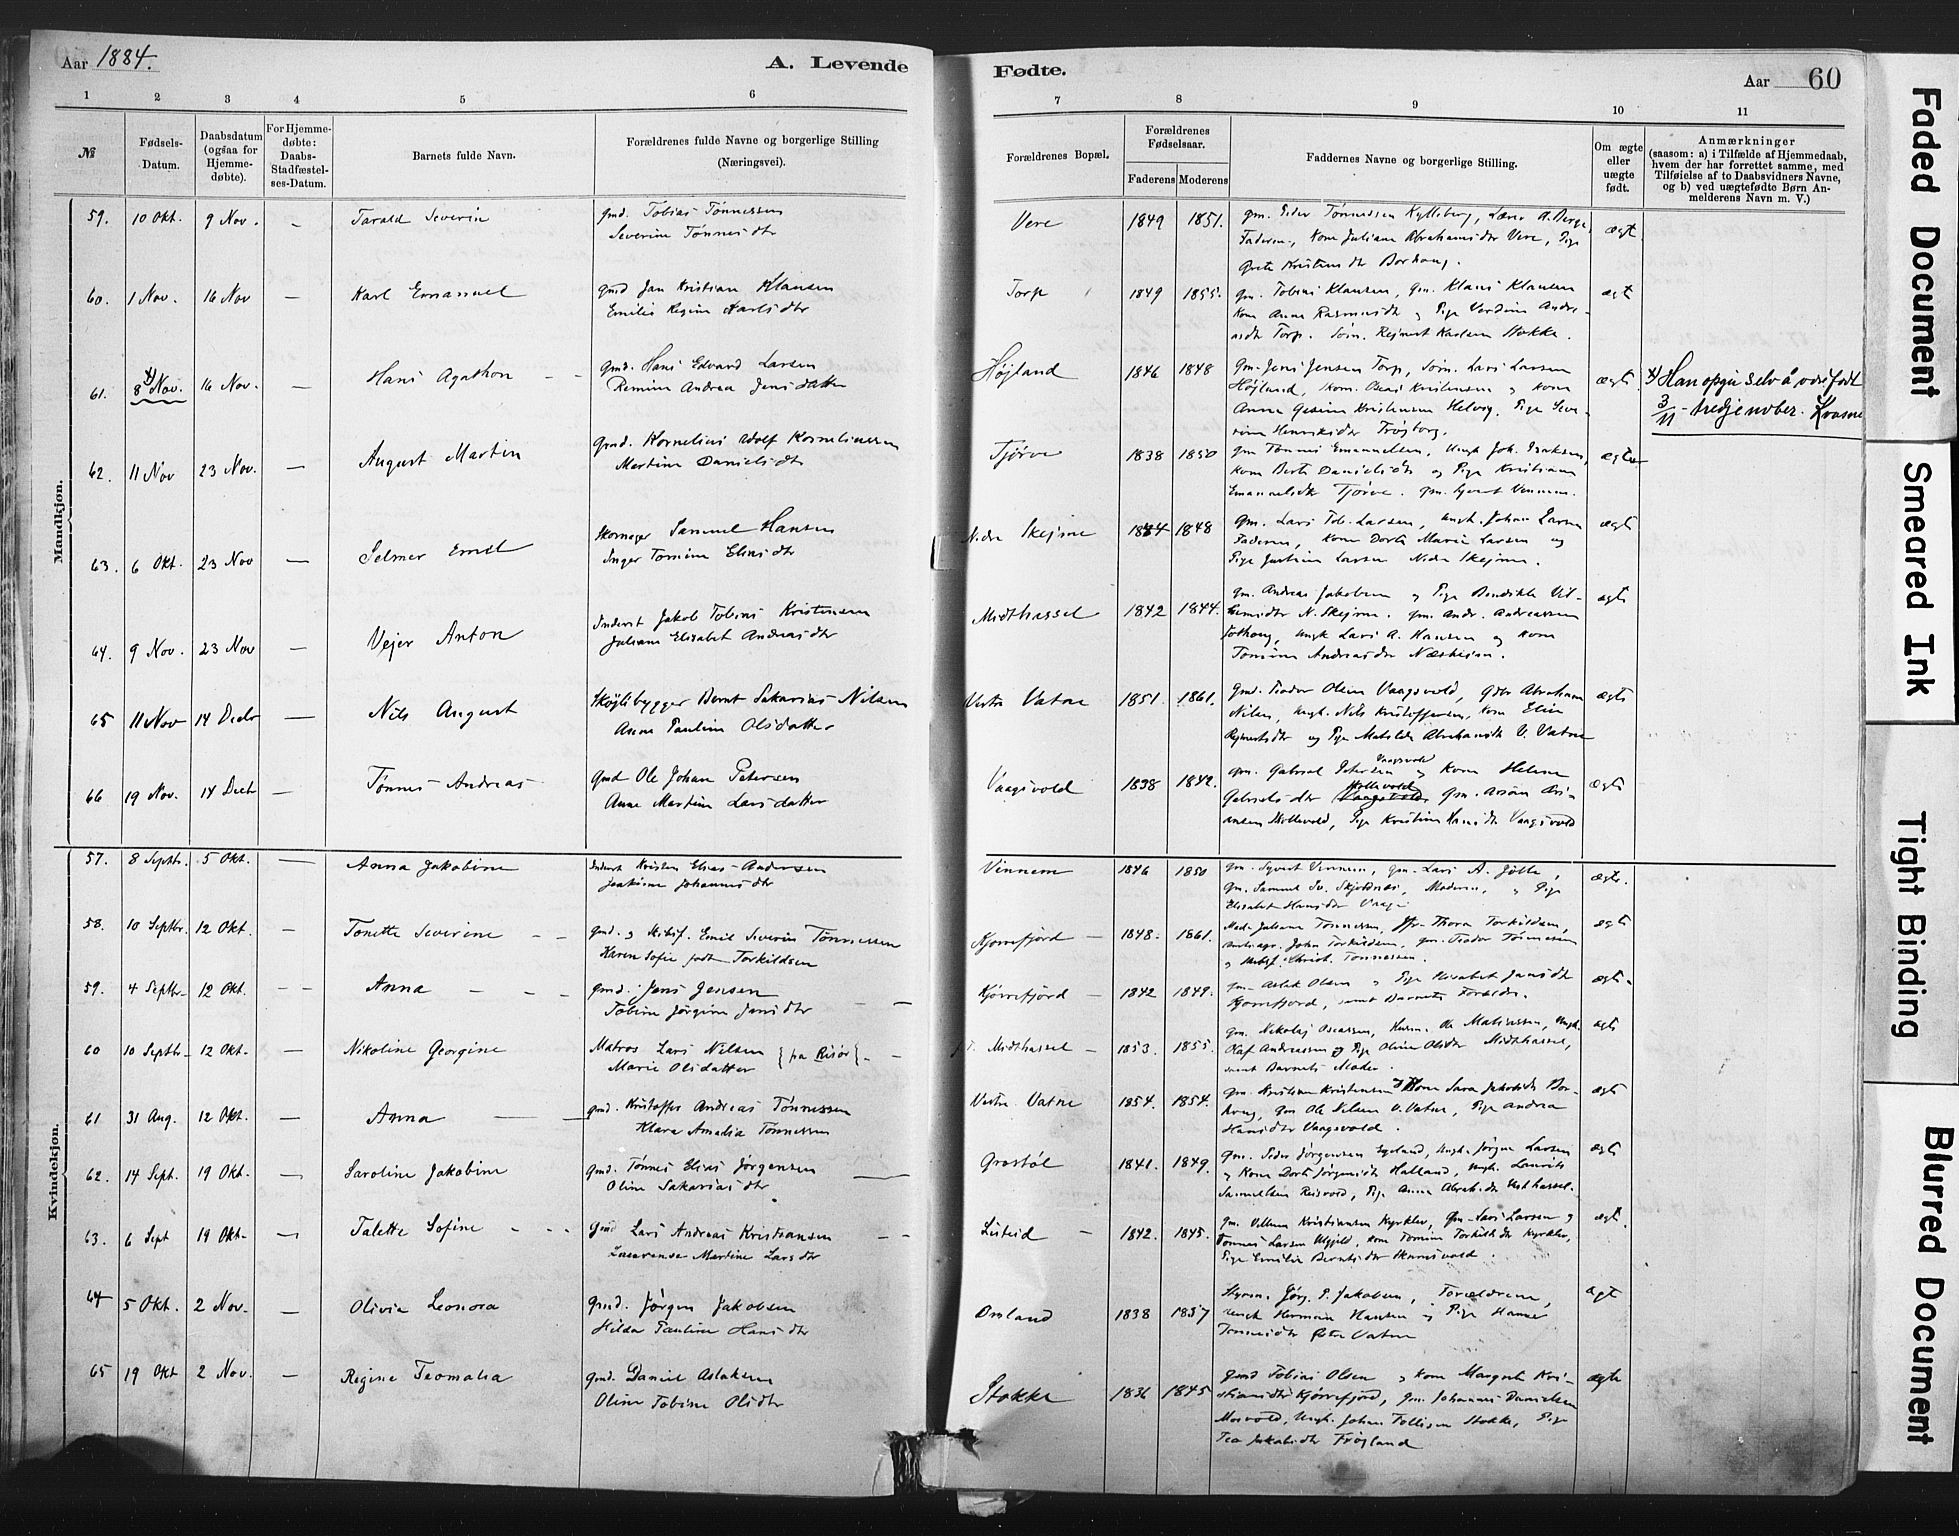 Aar 1884.
A. Levende
Fødte.
Aar 60
1 2 3 4 5 6 7 8 9 10 11
№
Fødsels-
Datum.
Daabsdatum
(ogsaa for
Hjemme-
døbte).
For Hjemme-
døbte:
Daabs-
Stadfæstel-
ses-Datum.
Barnets fulde Navn.
Forældrenes fulde Navne og borgerlige Stilling
(Næringsvei).
Forældrenes Bopæl.
Forældrenes
Fødselsaar.
Faderens Moderens
Faddernes Navne og borgerlige Stilling.
Om ægte
eller
uægte
født.
Anmærkninger
(saasom: a) i Tilfælde af Hjemmedaab,
hvem der har forrettet samme, med
Tilføielse af to Daabsvidners Navne,
og b) ved uægtefødte Børn An-
melderens Navn m. V.)
Mandkjøn.
59. 10 Okt. 9 Nov. — Tarald Severin
Gmd. Tobias Tønnessen
Severine Tønnesdtr
Vere 1849 1851.
Faderen, Kone Juliane Abrahamsdtr Vere, Pige
Grete Kristensdtr Borhaug.
ægt.
60. 1 Nov. 16 Nov — Karl Emanuel
Gmd Jan Kristian Klausen
Emilie Regine Karlsdtr
Torp 1849 1855.
Gm. Tobias Klausen, Gm. Klaus Klausen
Kone Anne Rasmusdtr og Pige Verdine Andre-
asdtr Torp. Søm. Rejnert Karlsen Stokke.
ægt
61. 8 Nov. 16 Nov. — Hans Agathon
Gmd. Hans Edvard Larsen
Remine Andrea Jensdatter
Højland 1846 1848
Gm. Jens Jensen Torp, Søm. Lars Larsen
Højland,
ægt.
x) Han opgir selv å være født
3/11 - tredje novber. Kvasne
62. 11 Nov 23 Nov. — August Martin
Gmd. Kornelius Wolf Korneliussen
Martine Danielsdtr
Tjørve 1838 1850
Gm Tønnes Emanuelsen, Ungk Joh. Isaksen,
Kone Berte Danielsdtr og Pige Kristiane
Emanuelsdtr Tjørve. Gm. Syvert Vinnem.
ægte
63. 6 Okt. 23 Nov — Selmer Ernst
Skomager Samuel Hansen
Inger Tomine Eliasdtr
Nedre Skejme 1848
Gm. Lars Tob. Larsen, Ungk. Johan Larsen
Faderen, Kone Dorte Marie Larsen og
Pige Justine Larsen Nedre Skejme.
ægt
64. 9 Nov. 23 Nov — Vejer Anton
Inderst Jakob Tobias Kristensen
Juliane Elisabet Andreasdtr
Midthassel 1842 1844.
Gm. Andreas Jakobsen og Pige Bendikte Vil-
N. Skejme. Gm. Andr. Andreassen
Ungk Lars A. Hansen og Kone
Tomine Andreasdtr Næsheim.
ægt
65 11 Nov 14 Decbr — Nils August
Skøitebygger Bernt Sakarias Nilsen
Anne Pauline Olsdatter
Vestre Vatne 1851. 1861.
Gmd. Teodor Olsen Vaagsvold, Gdbr Abraham
Nilsen, Ungk. Nils Kristoffersen, Kone Elise
Rejnertsdtr og Pige Matilde Abrahamsdtr V. Vatne
ægte
66 19 Nov. 14 Decbr — Tønnes Andreas
Gmd Ole Johan Petersen
Anne Martine Larsdatter
Vaagsvold 1838 1842.
Gm. Gabriel Petersen Vaagsvold og Kone Helene
Gabrielsdtr Mollevold
Mollevold, Pige Kristine Hansdtr Vaagsvold
ægte
Kvindekjøn.
57. 8 Septbr. 5 Okt. — Anna Jakobine
Inderst Kristen Elias Andersen
Joakime Johannesdtr
Vinnem 1846 1850
Gm. Syvert Vinnem, Gm. Lars A. Jølle,
Gm. Samuel Sv. Skjoldnes, Moderen, og Pige
Elisabet Hansdtr Vaage
ægte.
58. 10 Septbr. 12 Okt. — Tonette Severine
Gmd. og Skibsf. Emil Severin Tønnessen
Karen Sofie født Torkildsen
Kjørrefjord — 1848. 1861.
Mad. Juliane Tønnessen, Jfr. Thora Torkildsen,
John Torkildsen, Gm. Teodor Tønnessen
og Skibsf. Christ. Tønnessen.
ægt
59. 4 Septbr. 12 Okt. — Anna
Gmd. Jens Jensen
Tobine Jørgine Jensdtr
Kjørrefjord — 1842 1849.
Gm. Aslak Olsen og Pige Elisabet Jansdtr
Kjørrefjord, samt Barnets Forældre.
ægt.
60 10 Septbr. 12 Okt. — Nikoline Georgine
Matros Lars Nilsen {fra Risør}
Marie Olsdatter
Midthassel — 1853. 1855.
Gm. Nikolaj Oscarsen, Husm. Ole Mathiassen, Ungk.
Olaf Andreassen og Pige Oline Olsdtr Midthassel,
samt Barnets Moder.
ægt
61 31 Aug. 12 Okt. — Anna
Gmd. Kristoffer Andreas Tønnessen
Klara Amalia Tønnessen
Vestre Vatne 1854. 1854.
Gm. Kristian Kristensen og Kone Sara Jakobsdtr Bor-
haug, Gm Ole Nilsen V. Vatne, Pige Andrea
Hansdtr Vaagsvold.
ægt
62. 14 Sept. 19 Okt. — Saroline Jakobine
Gmd. Tønnes Elias Jørgensen
Oline Sakariasdtr
Grostøl 1841. 1849.
Gm. Peder Jørgensen Egeland, Ungk. Jørgen Larsen
og Kone Dorte Jørgensdtr Halland, Ungk. Laurits
Samuelsen Reisvold, Pige Anna Abrahdtr Østhassel.
ægt
63. 6 Sept 19 Okt. — Talette Sofine
Gmd Lars Andreas Kristiansen
Lazarense Martine Larsdtr
Listeid — 1842. 1845.
Gm. Villum Kristiansen Kyrklev, Gm. Lars Larsen og
Tønnes Larsen Ulgjeld, Kone Tomine Torkildsdtr Kyrklev,
Pige Emilie Berntsdtr
ægt.
64 5 Okt. 2 Nov. — Olivia Leonora
Gmd. Jørgen Jakobsen
Hilda Pauline Hansdtr
Ørsland 1838 1857
Styrm. Jørg. P. Jakobsen, Forældrene,
Ungk Herman Hansen og Pige Hanne
Tønnesdtr Østre Vatne
ægt
65 19 Okt 2 Nov. — Regine Teomalia
Gmd. Daniel Aslaksen
Oline Tobine Olsdtr
Stokke 1836 1845
Gmd Tobias Olsen og Kone Margrete Kri-
stiansdtr Kjørrefjord, Gm. Johannes Danielsen
Mosvold, Ungk. Johan Tollisen Stokke, Pige
Tea Jakobsdtr Frøyland
ægte
Faded Document
Smeared Ink
Tight Binding
Blurred Document